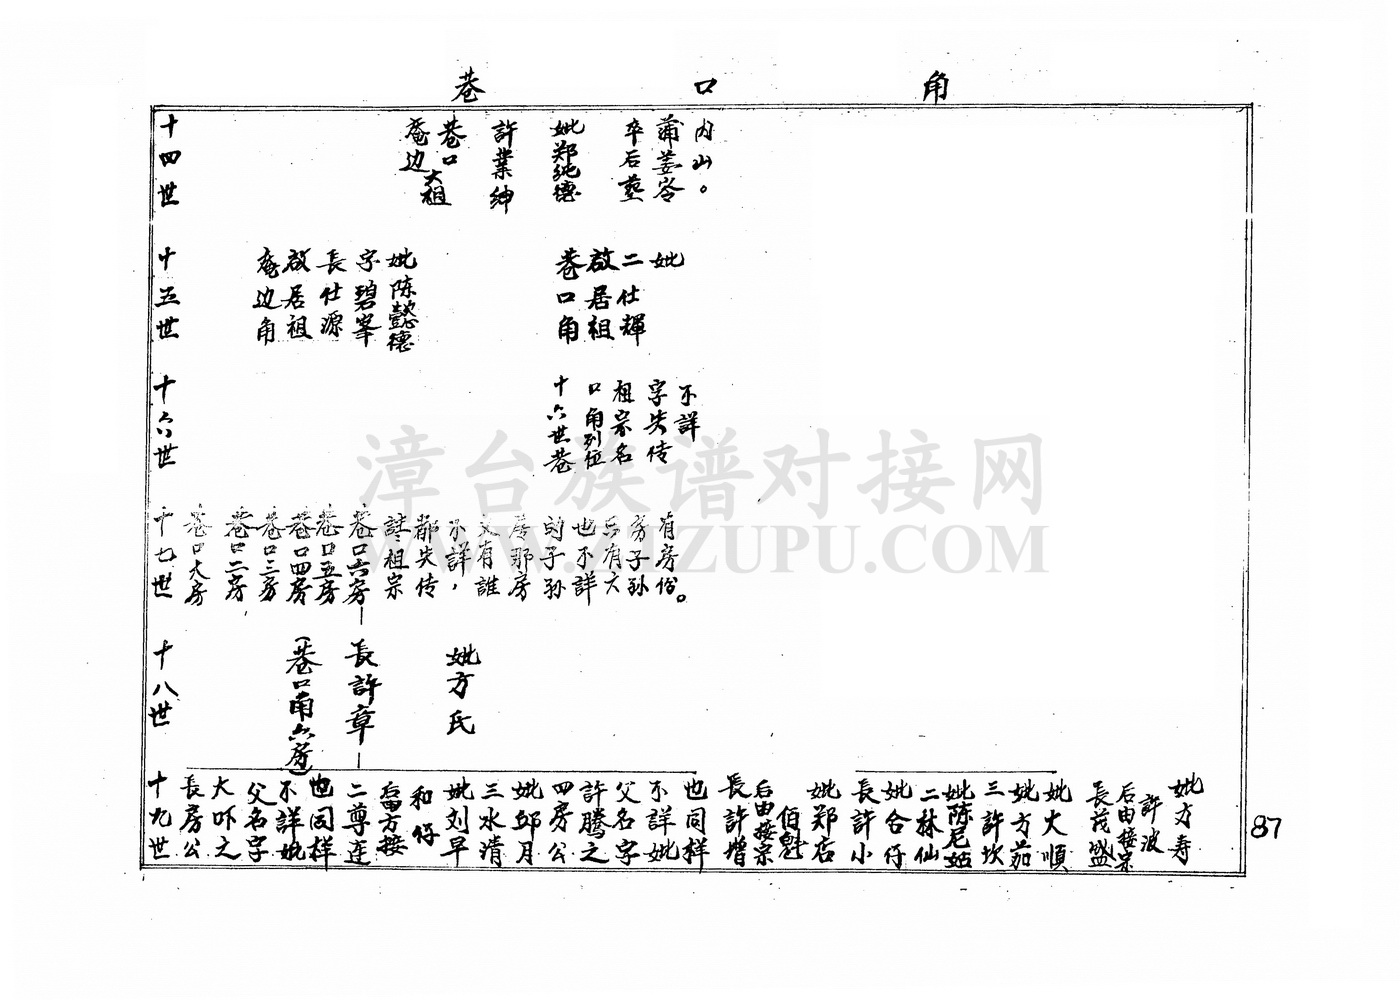 巷口角
十四世
庵边
巷口大祖
許業紳
妣郑纯德
卒后塟
蒲姜岺
内山。
十五世
庵边角
啟居祖
長仕源
字碧峯
妣陈懿德
巷口角
啟居祖
二仕輝
妣
十六世
十六世巷
口角列位
祖宗名
字失传
不詳
十七世
巷口大房
巷口二房
巷口三房
巷口四房
巷口五房
巷口六房
諱祖宗
都失传
不詳，
又有誰
房那房
的子孙
也不詳
只有六
房子孙
有房份。
十八世
(巷口角六房)
長許章
妣方氏
十九世
長房公
大吥之
父名字
不詳妣
也同样
二尊连
后由方接
和仔
妣刘早
三水清
妣邱月
四房公
許騰之
父名字
不詳妣
也同样
長許增
后由接宗
伯魁
妣郑店
長許小
妣合仔
二林仙
妣陈尼姑
三許坎
妣方茄
妣大順
長茂盛
后由接宗
許波
妣方寿
87
漳台族谱对接网
WWW.ZTZUPU.COM